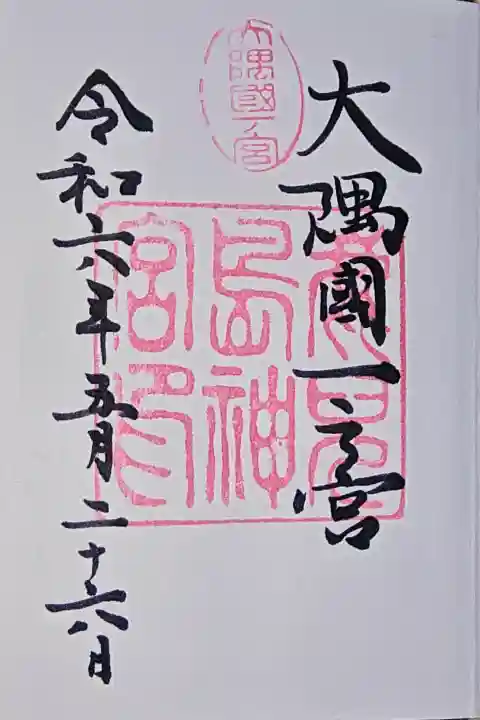 大隅國一之宮
大隅國一ノ宮
鹿児
島神
宮印
令和六年五月二十六日